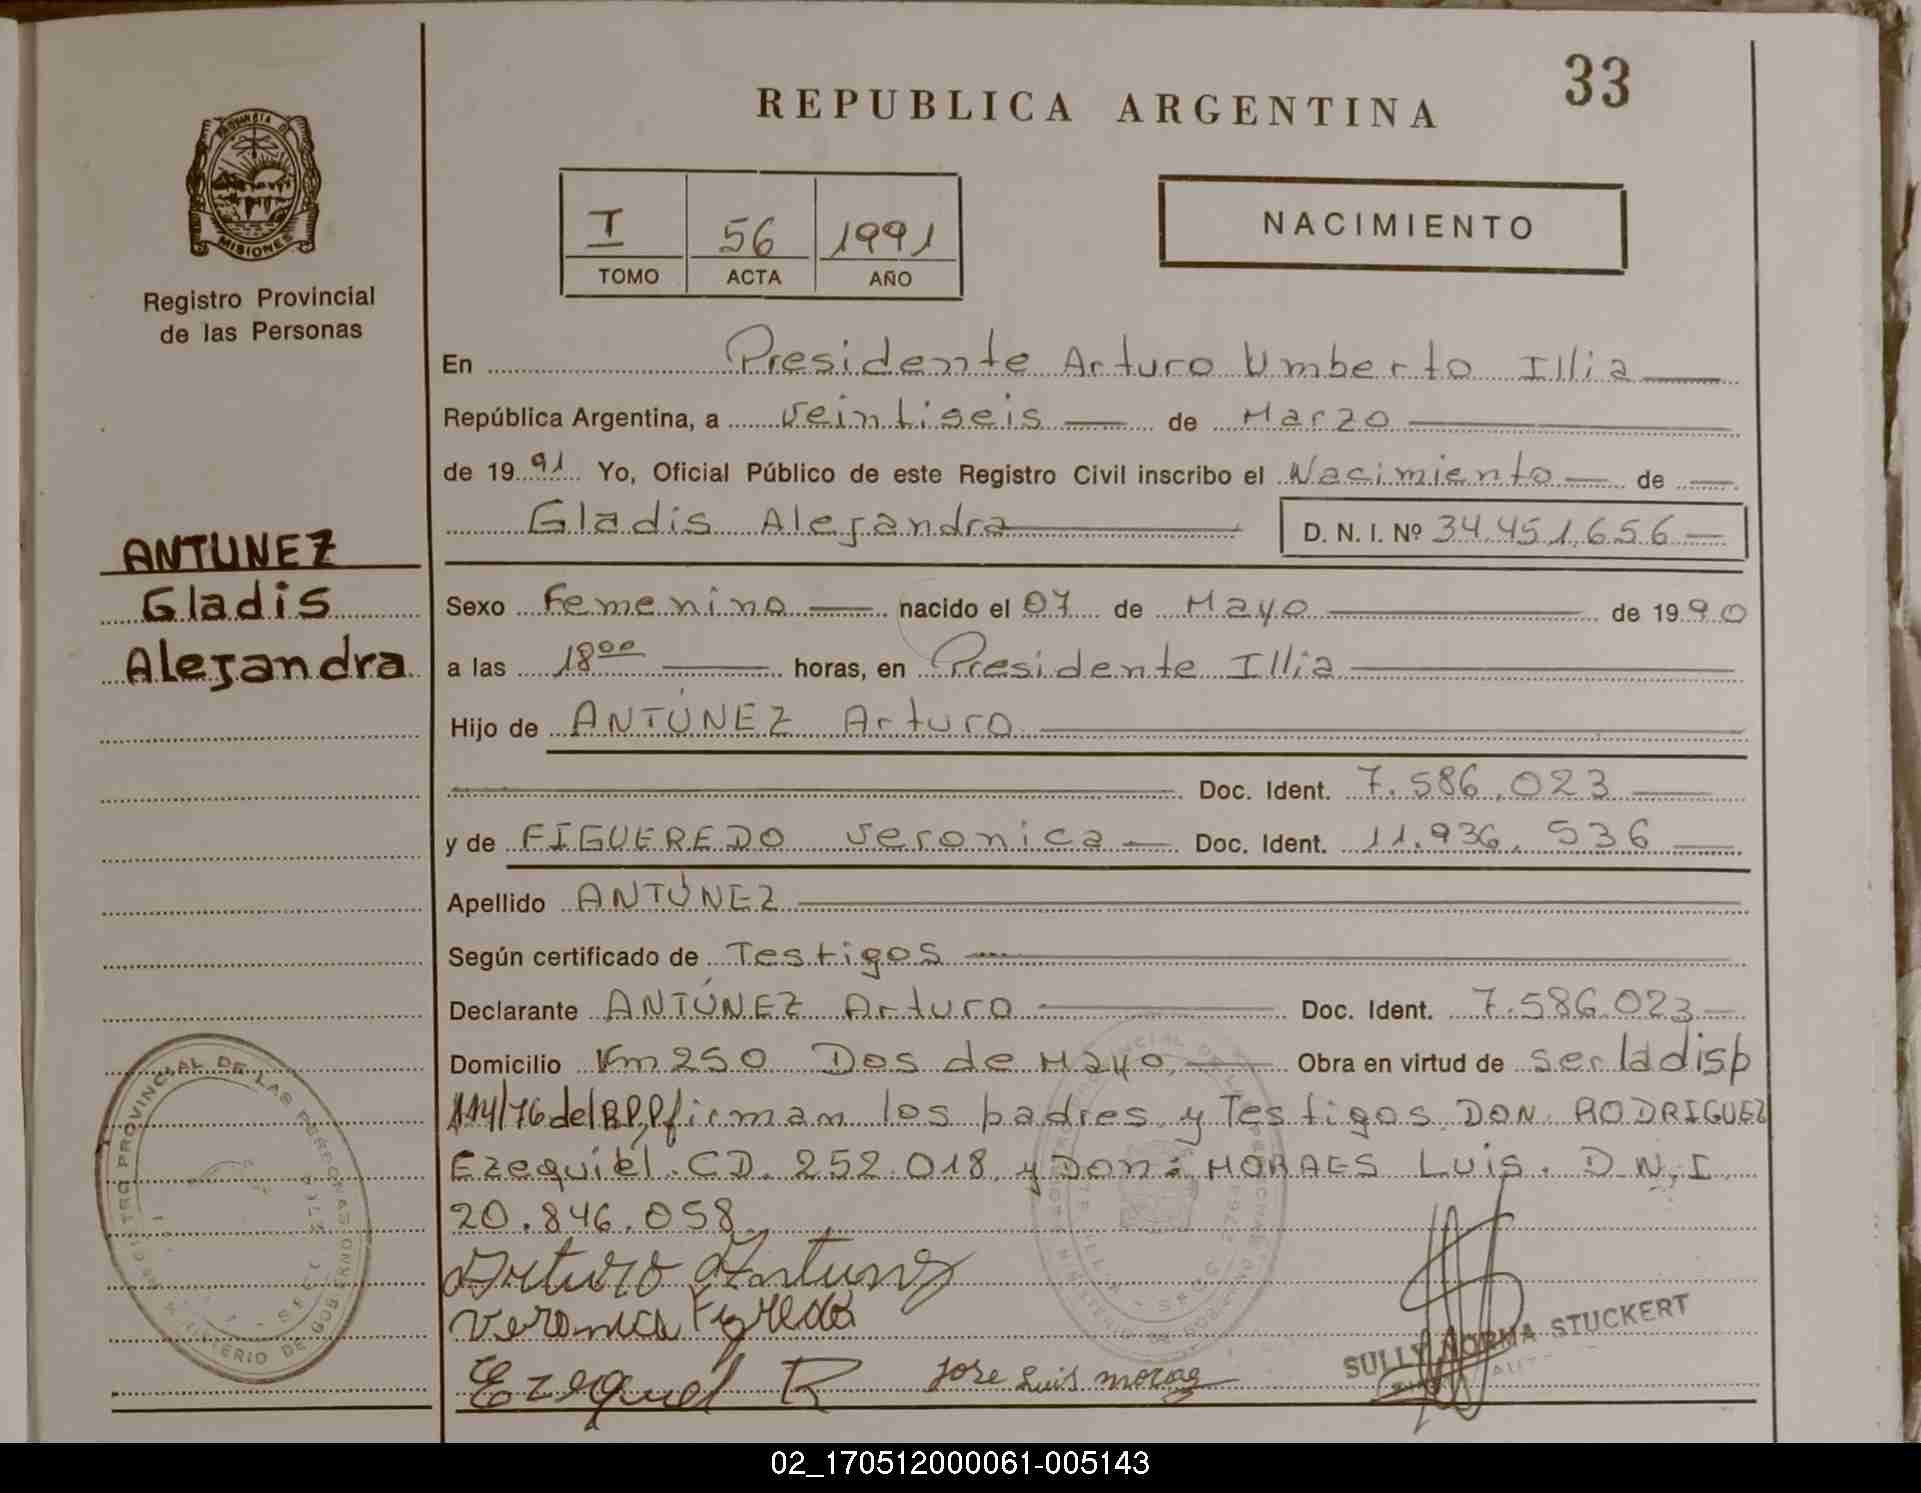 33
REPUBLICA ARGENTINA
PROVINCIA DE
MISIONES
Registro Provincial
de las Personas
I 56 1991
TOMO ACTA AÑO
NACIMIENTO
En Presidente Arturo Umberto Illia
República Argentina, a veintiseis de Marzo
de 1991 Yo, Oficial Público de este Registro Civil inscribo el Nacimiento de
Gladis Alejandra D. N. I. Nº 34.451.656
ANTUNEZ
Gladis
Alejandra
Sexo Femenino nacido el 07 de Mayo de 1990
a las 18 00 horas, en Presidente Illia
Hijo de ANTÚNEZ Arturo
Doc. Ident. 7.586.023
y de FIGUEREDO veronica Doc. Ident. 11.936.536
Apellido ANTÚNEZ
Según certificado de Testigos
Declarante ANTÚNEZ Arturo Doc. Ident. 7.586.023
Domicilio Km 250 Dos de Mayo, Obra en virtud de ser la disp
114/76 del R.P.P firman los padres y Testigos DON: RODRIGUEZ
Ezequiel. CD. 252.018 y Don: MORAES Luis. D.N.I
20.846.058
Arturo Antunez
veronica Figredo
Ezequiel R Jose Luis moraes
SULLY NORMA STUCKERT
REGISTRO PROVINCIAL DE LAS PERSONAS
MINISTERIO DE GOBIERNO
02_170512000061-005143